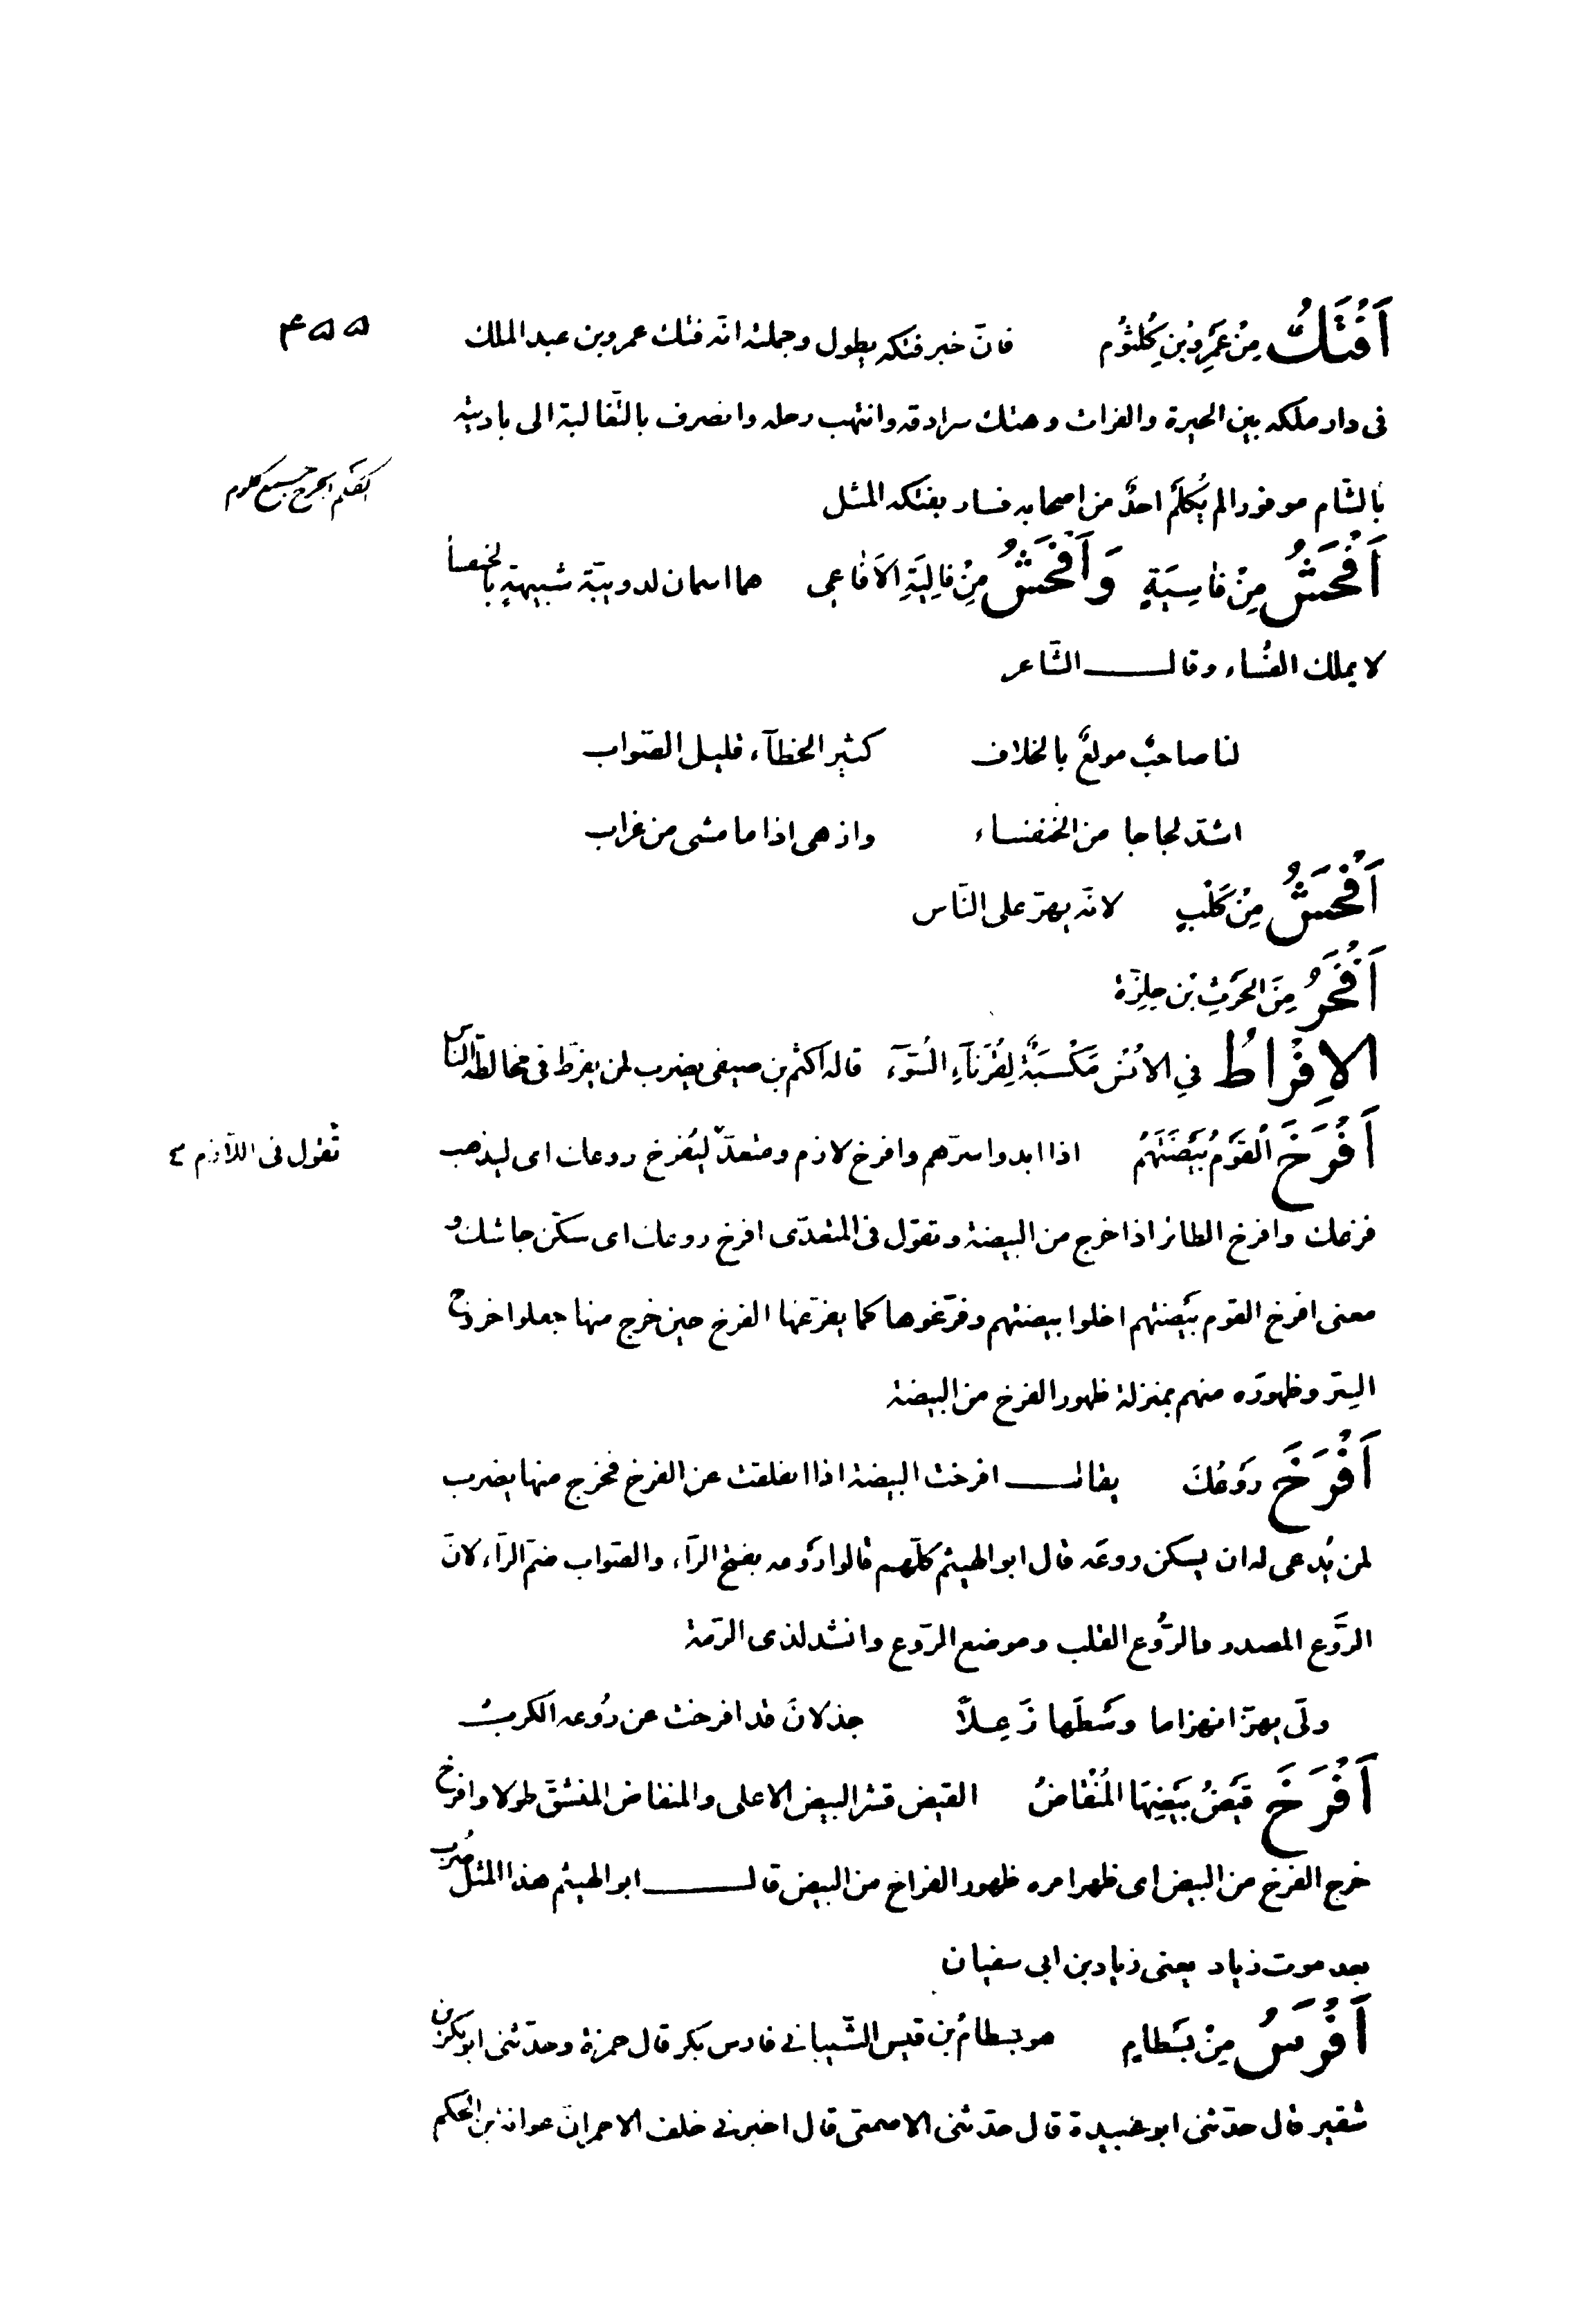 اَفْتَكُ مِنْ عَمْرِو بْنِ كُلْثُوم فانّ خبر فتكه يطول وجملته انّه فتك عمرو بن عبد الملك
۴۵۵
فى دار ملكه بين الحيرة والفرات وهتك سرادقه وانتهب رحله وانصرف بالتّغالبة الى باديته
بالشّام موفورا لم يُكلَم احدٌ من اصحابه فسار بفتكه المثل
الكَلم الجرح جمع كلوم
اَفْحَشُ مِنْ فٰاسِيَةٍ وَاَفْحَشُ مِنْ فالِيَةِ الاَفاعِى هما اسمان لدويبّة شبيهةٍ بالخنفسا
لا يملك الفُساء وقال الشّاعر
لنا صاحبٌ مولعٌ بالخلاف كثير الخطآء قليل الصّواب
اشدّ لجاجا من الخنفساء وازهى اذا ما مشى من غراب
اَفْحَشُ مِنْ كَلْبٍ لانّه يهرّ على النّاس
اَفْخَرُ مِنَ الحَرِثِ بْن حِلِزّة
الاِفْراطُ فِي الاُنْسِ مَكْسَبَةٌ لِقُرَنآءِ السُّوٓء قاله اكثم بن صيفى يضرب لمن يفرّط فى مخالطة النّاس
اَفْرَخَ القَوْمُ بَيْضَتَهُمْ اذا ابدوا سرّهم وافرخ لازم ومتعدّ ليُفرخ روعك اى ليذهب
تقول فى اللّازم
فزعك وافرخ الطائر اذا خرج من البيضة وتقول فى المتعدّى افرخ روعك اى سكّن جاشك و
معنى افرخ القوم بَيْضتهم اخلوا بيضتهم وفرّغوها كما يفرّغها الفرخ حين خرج منها جعلوا خروج
السِرّ وظهورَه منهم بمنزلة ظهور الفرخ من البيضة
اَفْرَخَ رَوْعُكَ يقال افرخت البيضة اذا انفلقت عن الفرخ فخرج منها يضرب
لمن يُدعى له ان يسكن روعَه قال ابو الهيثم كلّهم قالوا رَوعه بفتح الرّاء، والصّواب ضمّ الرّاء، لانّ
الرَّوع المصدر والرُّوع القلب وموضع الرّوع وانشد لذى الرّمة
ولّى يهزّ انهزاما وسْطَها زَعِلاً جذلانَ قد افرخت عن رُوعه الكربُ
اَفْرَخَ قَيْضُ بَيْضِهَا المُنْقاضُ القيض قشر البيض الاعلى والمنقاض المنشقّ طولا وافرخ
خرج الفرخ من البيض اى ظهر امره ظهور الفراخ من البيض قال ابو الهيثم هذا المثل ضُرب
بعد موت زياد يعنى زياد بن ابى سفيان
اَفْرَسُ مِنْ بَسْطامٍ هو بسطامُ بن قيس الشّيبانى فارس بكر قال حمزة وحدّثنى ابو بكر بن
شقير قال حدّثنى ابو عبيدة قال حدّثنى الاصمعّى قال اخبرنى خلف الاحمر انّ عوانة بن الحكم